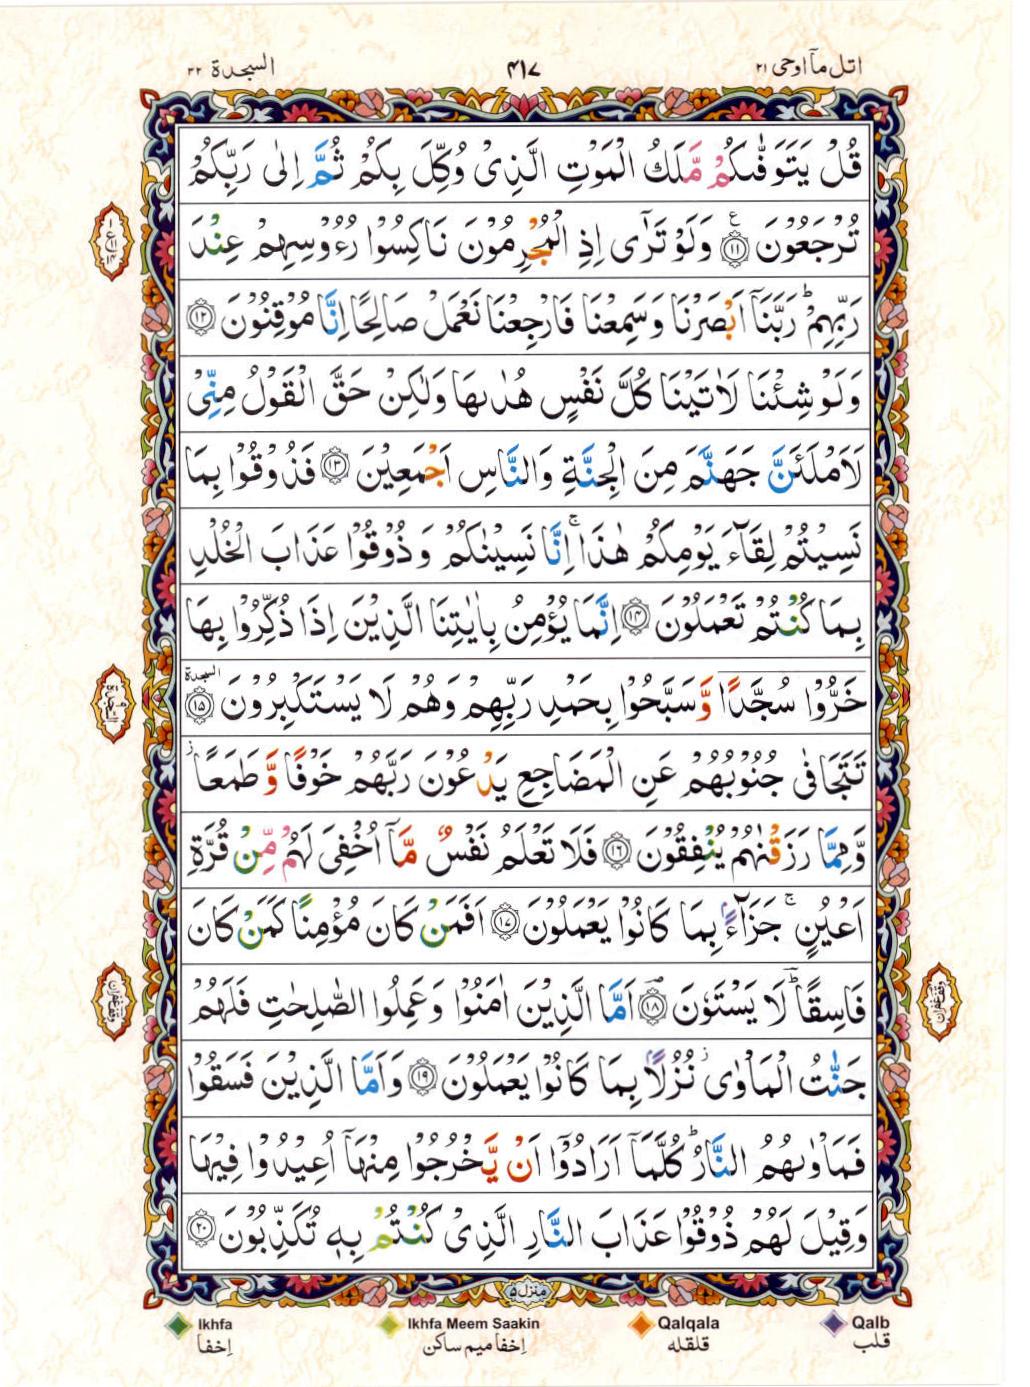 اتل مآ اوحی ۲۱
۴۱۷
السجدة ۳۲
قُلْ يَتَوَفّٰٮكُمْ مَّلَكُ الْمَوْتِ الَّذِىْ وُكِّلَ بِكُمْ ثُمَّ اِلٰى رَبِّكُمْ
تُرْجَعُوْنَ ﴿۱۱﴾ ع وَلَوْ تَرٰٓى اِذِ الْمُجْرِمُوْنَ نَاكِسُوْا رُءُوْسِهِمْ عِنْدَ
رَبِّهِمْ ؕ رَبَّنَاۤ اَبْصَرْنَا وَسَمِعْنَا فَارْجِعْنَا نَعْمَلْ صَالِحًا اِنَّا مُوْقِنُوْنَ ﴿۱۲﴾
وَلَوْ شِئْنَا لَاٰتَيْنَا كُلَّ نَفْسٍ هُدٰٮهَا وَلٰكِنْ حَقَّ الْقَوْلُ مِنِّىْ
لَاَمْلَـَٔنَّ جَهَنَّمَ مِنَ الْجِنَّةِ وَالنَّاسِ اَجْمَعِيْنَ ﴿۱۳﴾ فَذُوْقُوْا بِمَا
نَسِيْتُمْ لِقَآءَ يَوْمِكُمْ هٰذَا ۚ اِنَّا نَسِيْنٰكُمْ وَذُوْقُوْا عَذَابَ الْخُلْدِ
بِمَا كُنْتُمْ تَعْمَلُوْنَ ﴿۱۴﴾ اِنَّمَا يُؤْمِنُ بِاٰيٰتِنَا الَّذِيْنَ اِذَا ذُكِّرُوْا بِهَا
خَرُّوْا سُجَّدًا وَّسَبَّحُوْا بِحَمْدِ رَبِّهِمْ وَهُمْ لَا يَسْتَكْبِرُوْنَ ﴿۱۵﴾ السجدة
تَتَجَافٰى جُنُوْبُهُمْ عَنِ الْمَضَاجِعِ يَدْعُوْنَ رَبَّهُمْ خَوْفًا وَّطَمَعًا ز
وَّمِمَّا رَزَقْنٰهُمْ يُنْفِقُوْنَ ﴿۱۶﴾ فَلَا تَعْلَمُ نَفْسٌ مَّاۤ اُخْفِىَ لَهُمْ مِّنْ قُرَّةِ
اَعْيُنٍ ۚ جَزَآءًۢ بِمَا كَانُوْا يَعْمَلُوْنَ ﴿۱۷﴾ اَفَمَنْ كَانَ مُؤْمِنًا كَمَنْ كَانَ
فَاسِقًا ؕ لَا يَسْتَوٗنَ ﴿۱۸﴾ اَمَّا الَّذِيْنَ اٰمَنُوْا وَعَمِلُوا الصّٰلِحٰتِ فَلَهُمْ
جَنّٰتُ الْمَاْوٰى ز نُزُلًاۢ بِمَا كَانُوْا يَعْمَلُوْنَ ﴿۱۹﴾ وَاَمَّا الَّذِيْنَ فَسَقُوْا
فَمَاْوٰٮهُمُ النَّارُ ؕ كُلَّمَاۤ اَرَادُوْۤا اَنْ يَّخْرُجُوْا مِنْهَاۤ اُعِيْدُوْا فِيْهَا
وَقِيْلَ لَهُمْ ذُوْقُوْا عَذَابَ النَّارِ الَّذِىْ كُنْتُمْ بِهٖ تُكَذِّبُوْنَ ﴿۲۰﴾
السجدة
وقف غفران
وقف غفران
منزل ۵
Ikhfa
Ikhfa Meem Saakin
Qalqala
Qalb
اِخفا
اِخفا میم ساکن
قلقله
قلب